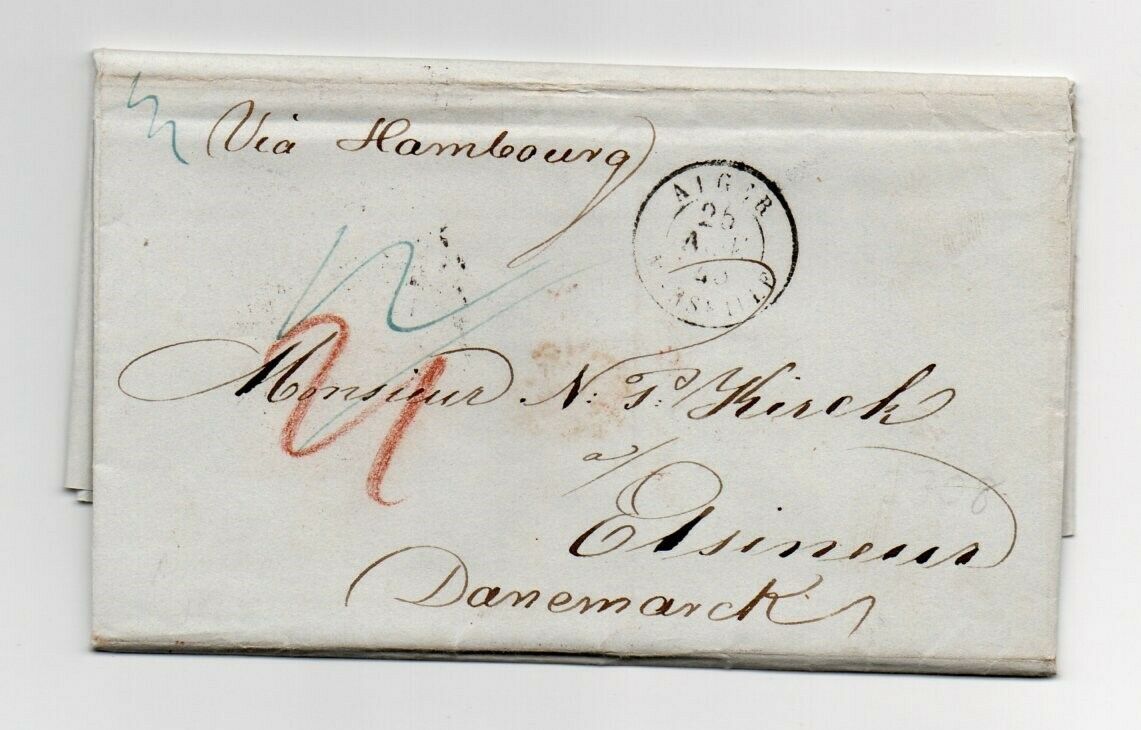 Via Hambourg
ALGER
25
MARSEILLE
21
Monsieur N. P. Kirck
a/
Elsineur
Danemarck